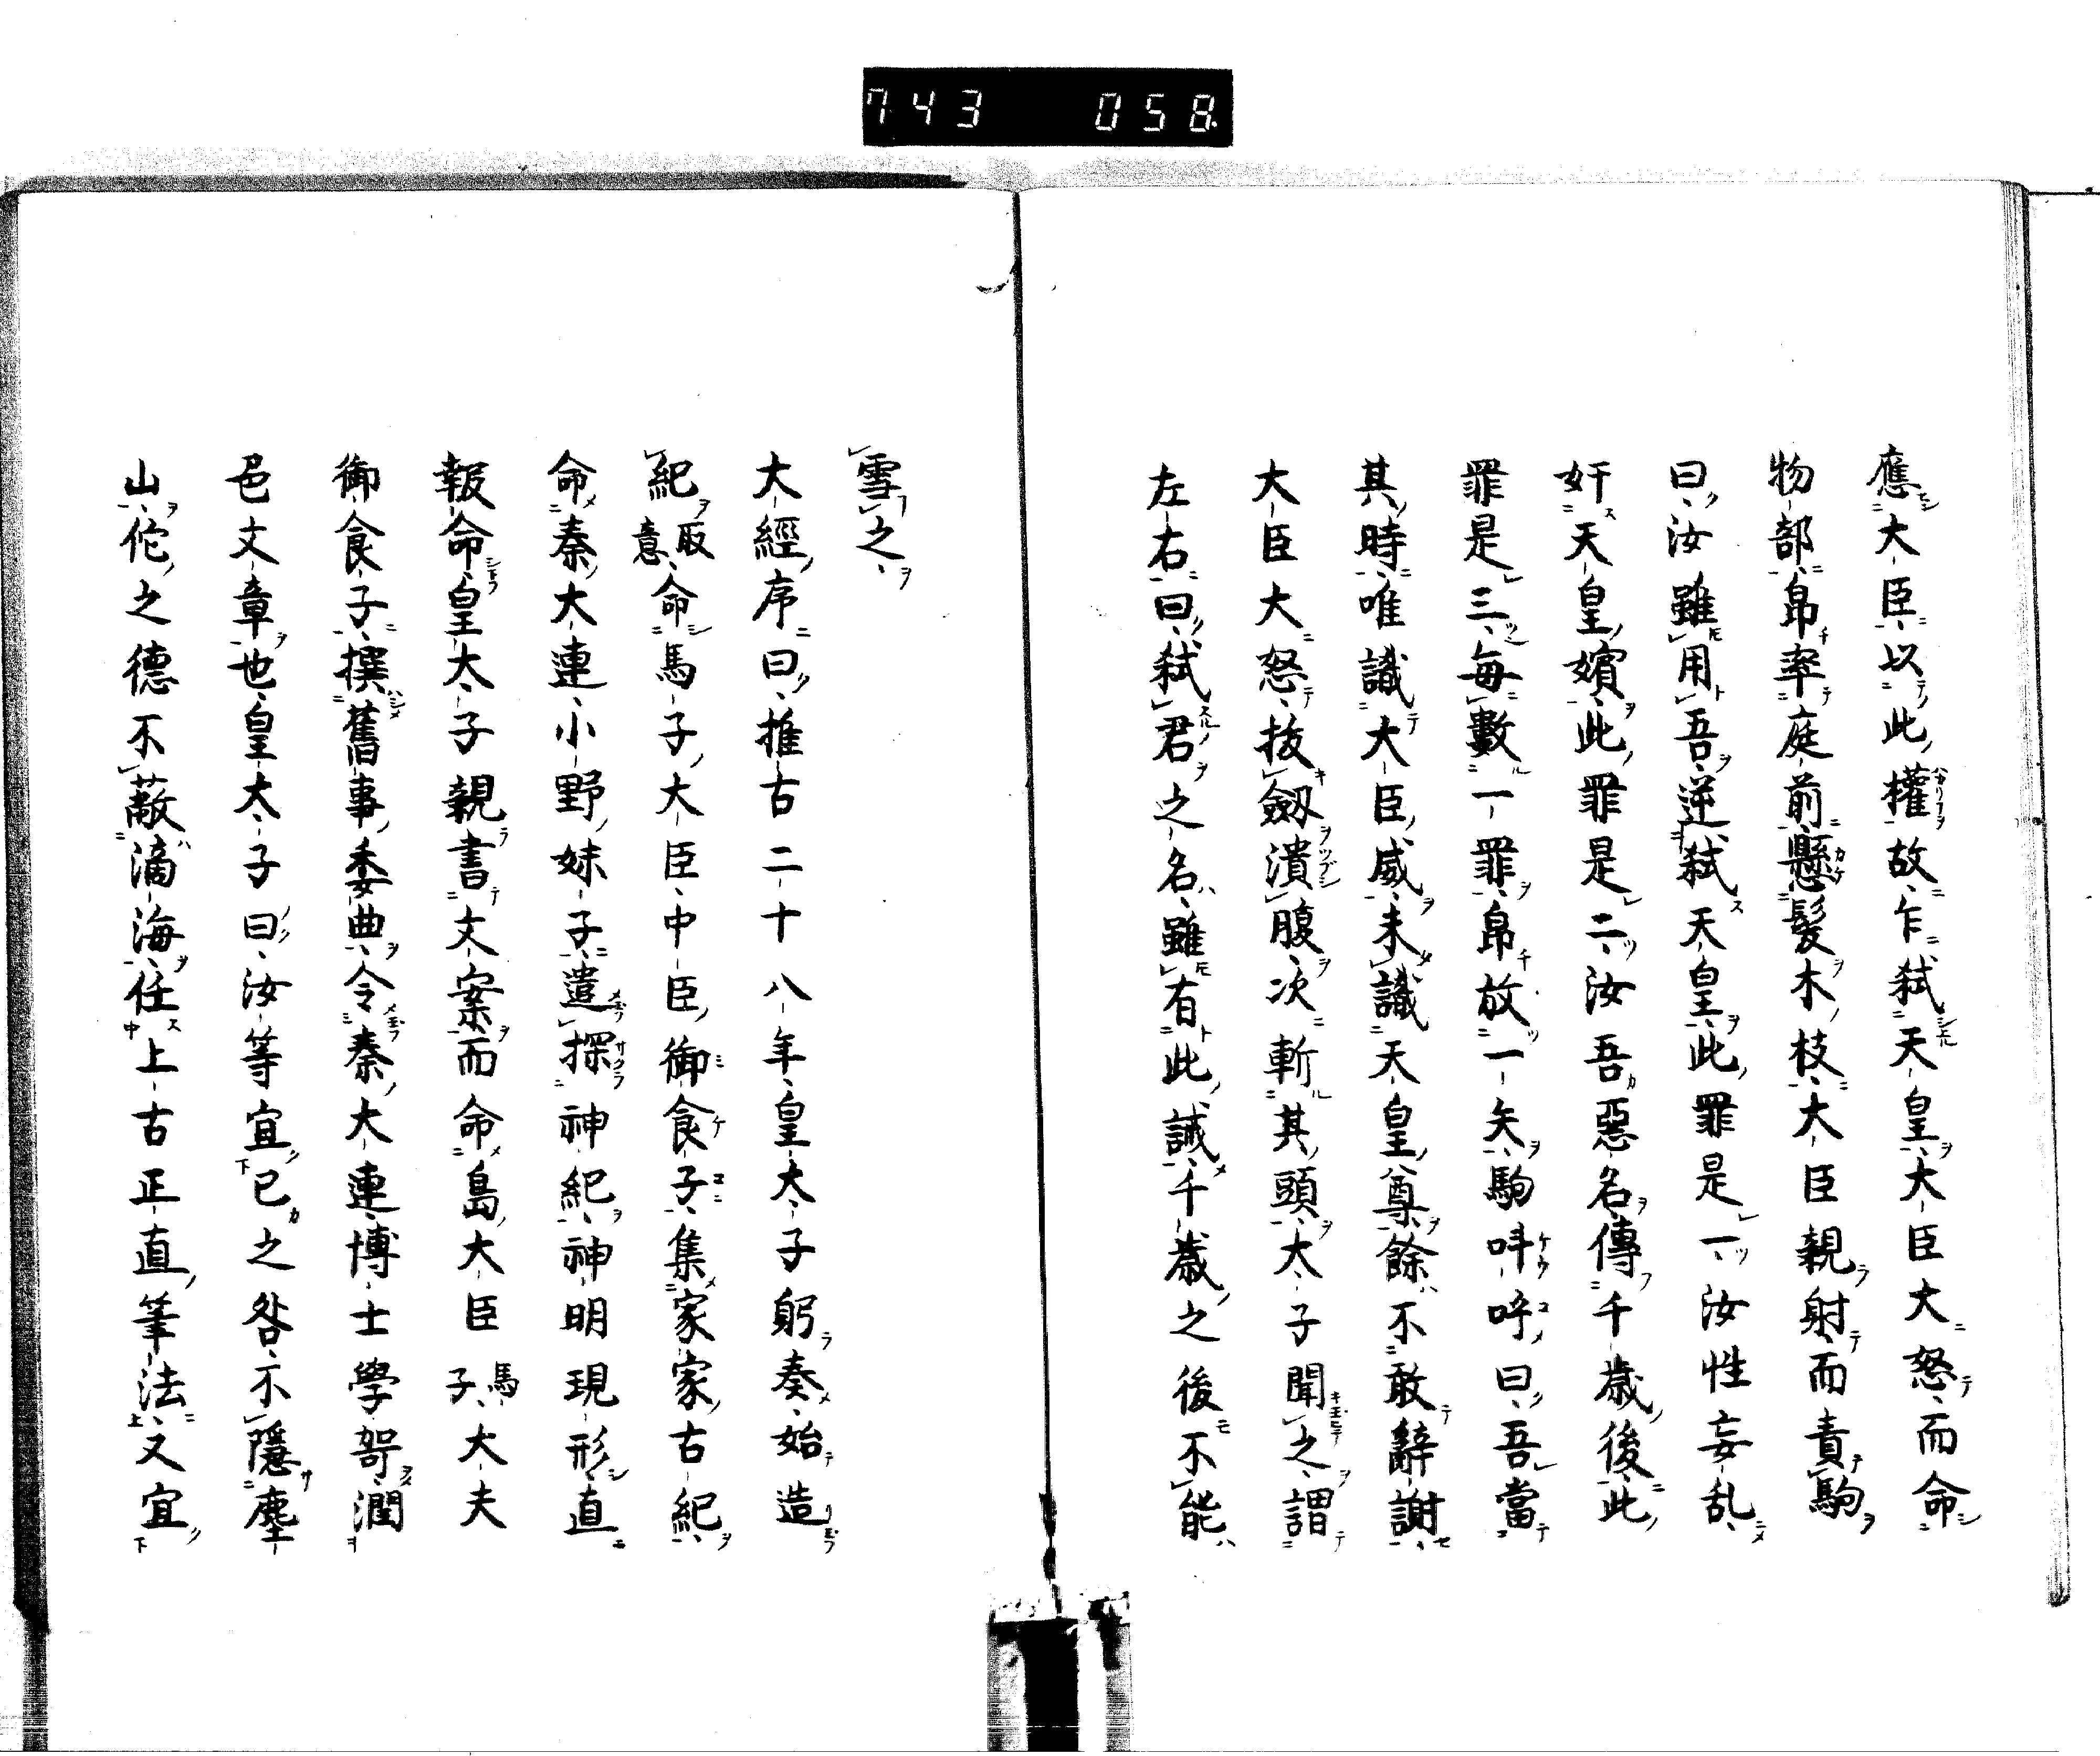 743 058
應大臣以此權故乍弑天皇大臣大怒而命
物部帛率庭前懸髪木枝大臣親射而責駒
曰汝雖用吾逆弑天皇此罪是一汝性妄乱
奸天皇嬪此罪是二汝吾惡名傳千歳後此
罪是三每數一罪帛放一矢駒呌呼曰吾當
其時唯識大臣威未識天皇尊餘不敢辭謝
大臣大怒抜劔潰腹次斬其頭大子聞之謂
左右曰弑君之名雖有此誡千歳之後不能
雪之
大經序曰推古二十八年皇太子躬奏始造
紀取意命馬子大臣中臣御食子集家家古紀
命秦大連小野妹子遣探神紀神明現形直
報命皇太子親書文案而命島大臣馬子大夫
御食子撰舊事委曲令秦大連博士學哿潤
色文章也皇太子曰汝等宜已之咎不隱塵
山佗之德不蔽滴海任上古正直筆法又宜